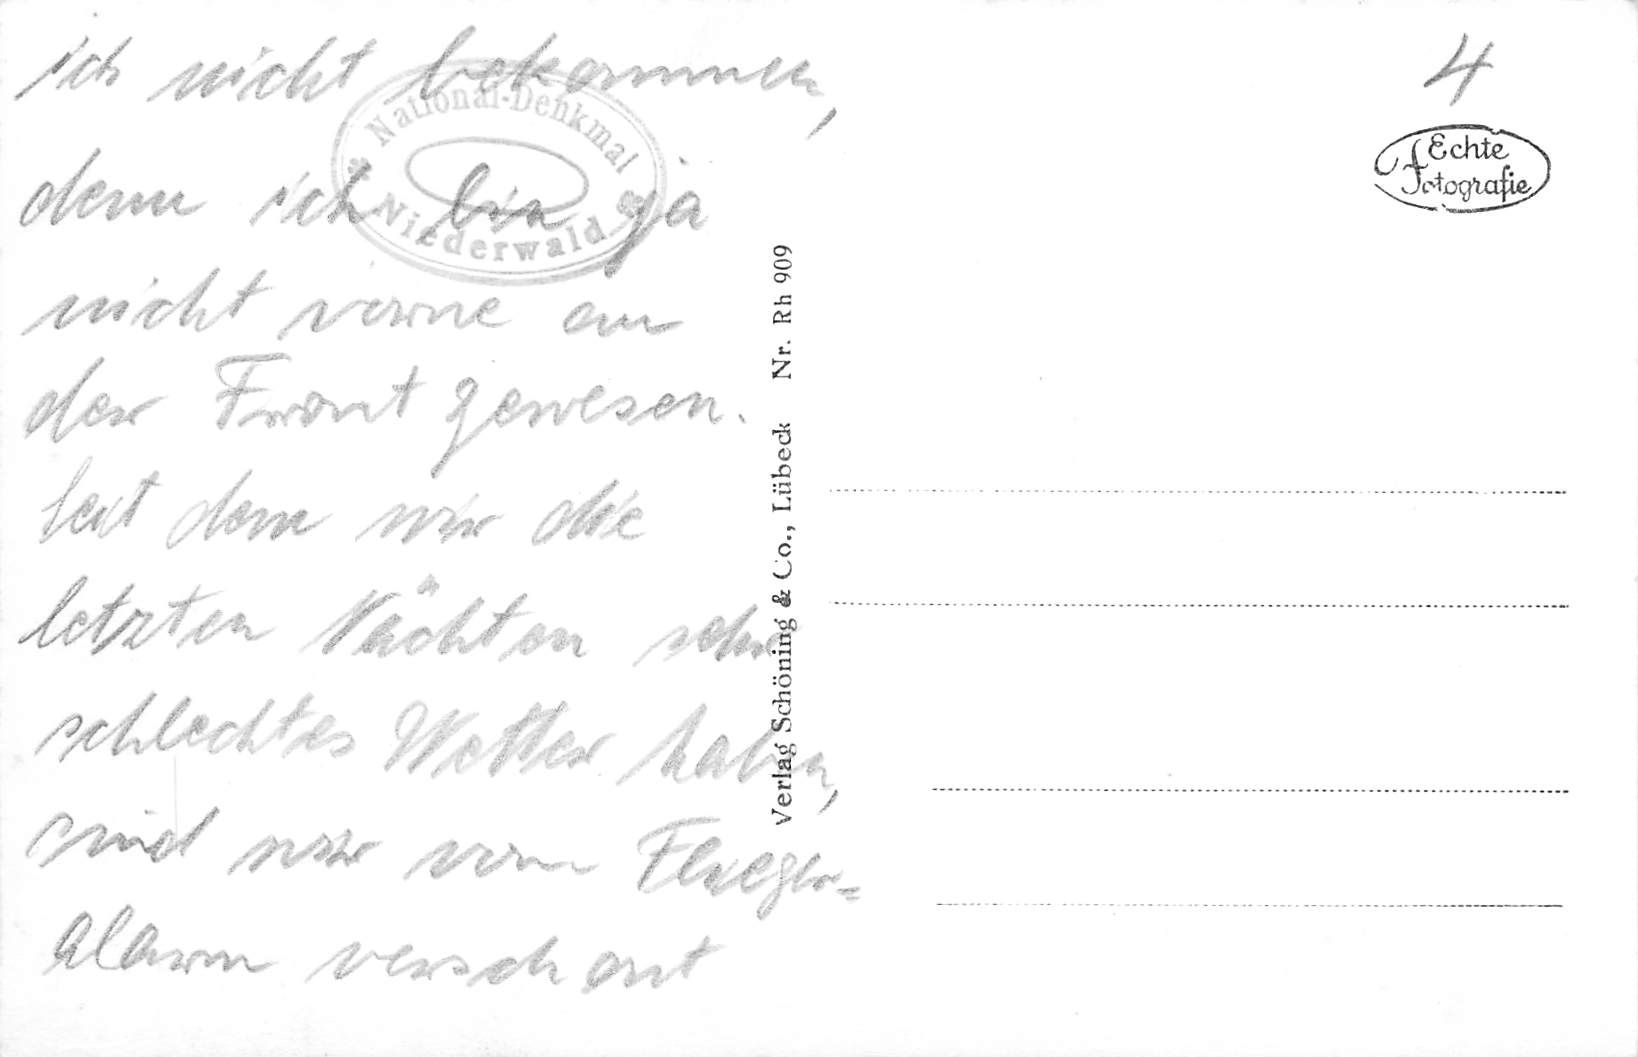 ich nicht bekommen,
denn ich bin ja
nicht vorne an
der Front gewesen.
Seit dem wir die
letzten Nächten sehr
schlechtes Wetter haben,
sind wir vom Flieger=
alarm verschont
National-Denkmal
Niederwald
Verlag Schöning & Co., Lübeck Nr. Rh 909
4
Echte
Fotografie